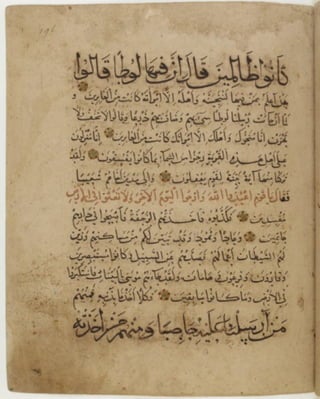 كانوا ظالمين قال إن فيها لوطا قالوا
نحن أعلم بمن فيها لننجينه وأهله إلا امرأته كانت من الغابرين و
لما أن جاءت رسلنا لوطا سيء بهم وضاق بهم ذرعا وقالوا لا تخف ولا
تحزن إنا منجوك وأهلك إلا امرأتك كانت من الغابرين إنا منزلون
على أهل هذه القرية رجزا من السماء بما كانوا يفسقون ولقد
تركنا منها آية بينة لقوم يعقلون وإلى مدين أخاهم شعيبا
فقال يا قوم اعبدوا الله وارجوا اليوم الآخر ولا تعثوا في الأرض
مفسدين فكذبوه فأخذتهم الرجفة فأصبحوا في دارهم
جاثمين وعادا وثمود وقد تبين لكم من مساكنهم وزين
لهم الشيطان أعمالهم فصدهم عن السبيل وكانوا مستبصرين
وقارون وفرعون وهامان ولقد جاءهم موسى بالبينات فاستكبروا
في الأرض وما كانوا سابقين فكلا أخذنا بذنبه فمنهم
من أرسلنا عليه حاصبا ومنهم من أخذته